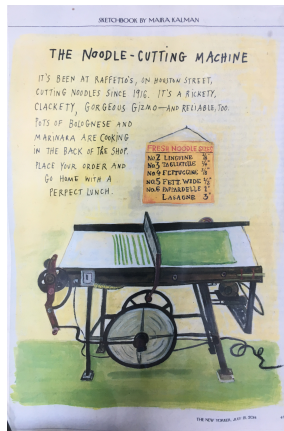 SKETCHBOOK BY MAIRA KALMAN
THE NOODLE-CUTTING MACHINE
IT'S BEEN AT RAFFETTO'S, ON HOUSTON STREET,
CUTTING NOODLES SINCE 1916. IT'S A RICKETY,
CLACKETY, GORGEOUS GIZMO—AND RELIABLE, TOO.
POTS OF BOLOGNESE AND
MARINARA ARE COOKING
IN THE BACK OF THE SHOP.
PLACE YOUR ORDER AND
GO HOME WITH A
PERFECT LUNCH.
FRESH NOODLE SIZES
NO 2 LINGUINE 1/8"
NO 3 TAGLIATELLE
NO 4 FETTUCCINE
NO 5 FETT. WIDE 1/2"
NO. 6 PAPPARDELLE 1"
LASAGNE 3"
THE NEW YORKER, JULY 2014